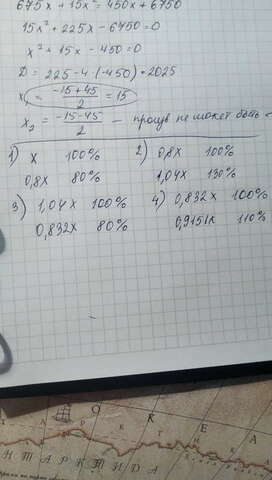 675x + 15x² = 450x + 6750
15x² + 225x - 6750 = 0
x² + 15x - 450 = 0
D = 225 - 4·(-450) = 2025
x₁ = (-15 + 45)/2 = 15
x₂ = (-15 - 45)/2 — произв не может быть <
1) x 100%
0,8x 80%
2) 0,8x 100%
1,04x 130%
3) 1,04x 100%
0,832x 80%
4) 0,832x 100%
0,9151x 110%
О К Е А
Н Т А Р К Т И Д А